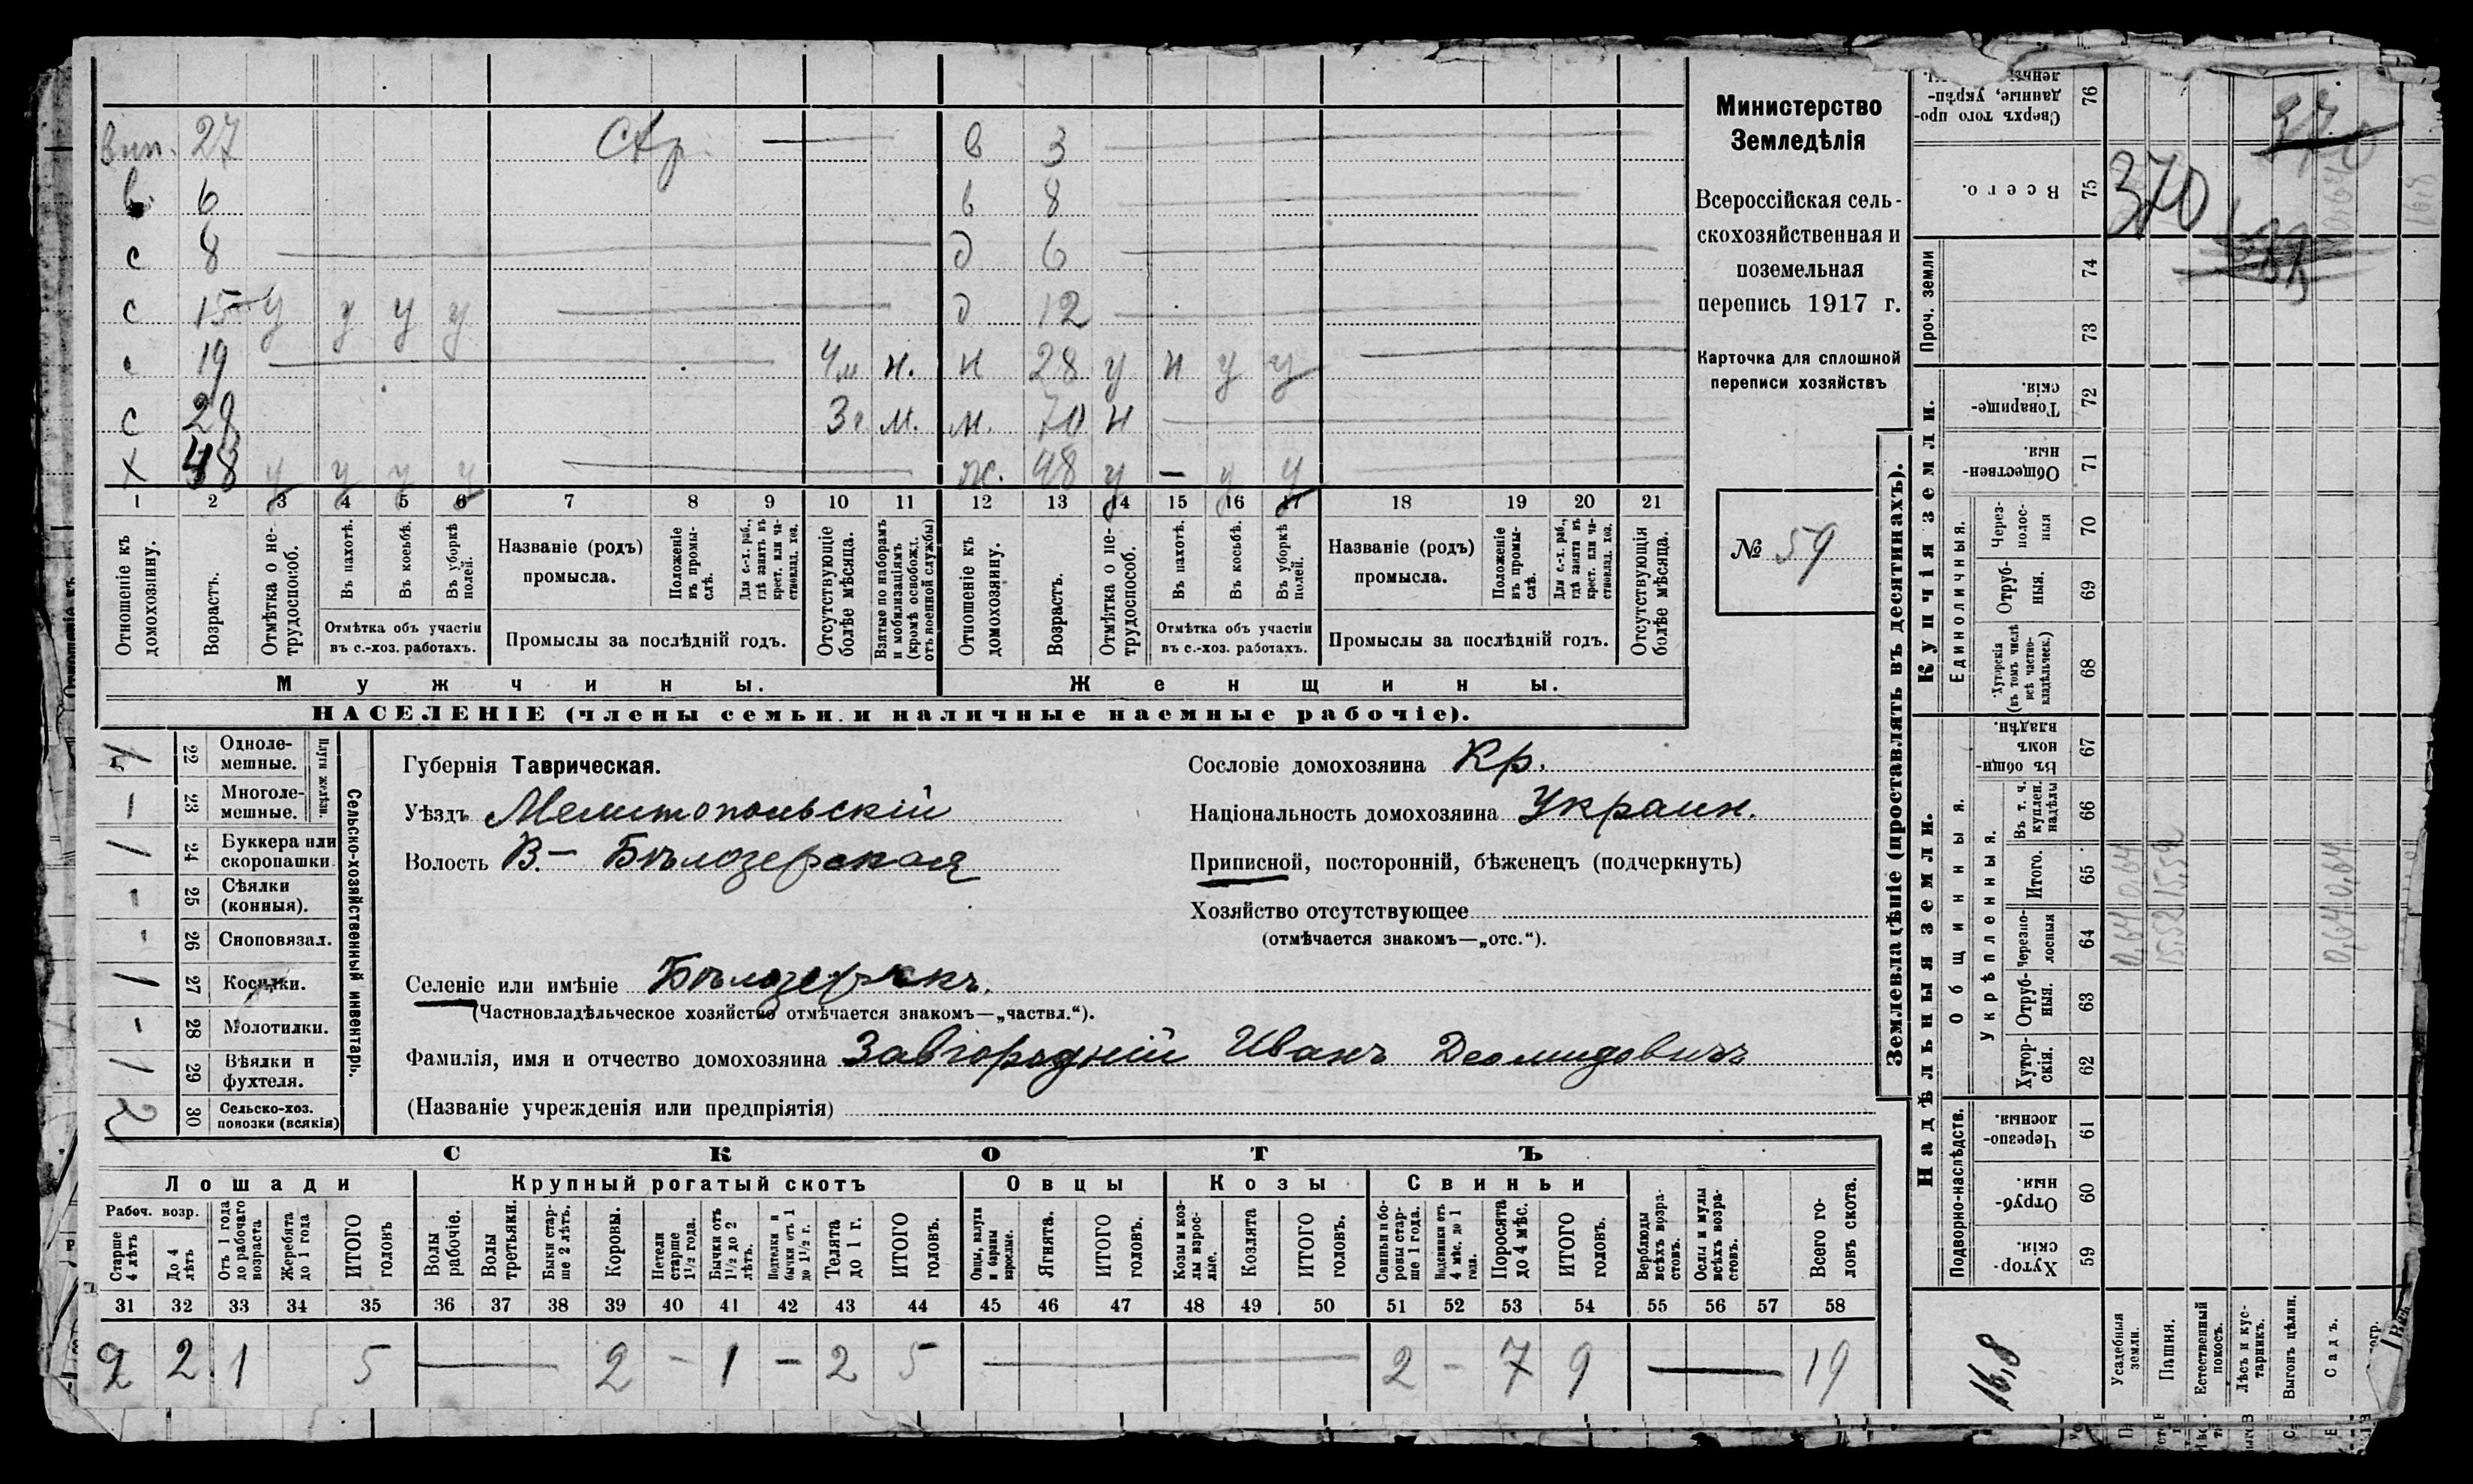 Министерство
Земледѣлія
Всероссійская сель-
скохозяйственная и
поземельная
перепись 1917 г.
Карточка для сплошной
переписи хозяйствъ
№ 59
27 Стр. — в 3
в 6 в 8
с 8 — д 6
с 15 у у у у — д 12
с 19 — н. н 28 у н у у —
с м. м. 70 н —
х 48 у у у у — ж. 48 у — у у
1 2 3 4 5 6 7 8 9 10 11 12 13 14 15 16 17 18 19 20 21
Отношеніе къ домохозяину.
Возрастъ.
Отмѣтка о не-трудоспособ.
Въ пахотѣ.
Въ косьбѣ.
Въ уборкѣ полей.
Отмѣтка объ участіи въ с.-хоз. работахъ.
Названіе (родъ) промысла.
Положеніе въ промы-слѣ.
Для с.-х. раб., гдѣ занятъ въ крест. или ча-стновлад. хоз.
Промыслы за послѣдній годъ.
Отсутствующіе болѣе мѣсяца.
Взятые по наборамъ и мобилизаціямъ (кромѣ освобожд. отъ военной службы)
Отношеніе къ домохозяину.
Возрастъ.
Отмѣтка о не-трудоспособ.
Въ пахотѣ.
Въ косьбѣ.
Въ уборкѣ полей.
Отмѣтка объ участіи въ с.-хоз. работахъ.
Названіе (родъ) промысла.
Положеніе въ промы-слѣ.
Для с.-х. раб., гдѣ занята въ крест. или ча-стновлад. хоз.
Промыслы за послѣдній годъ.
Отсутствующія болѣе мѣсяца.
Мужчины. Женщины.
НАСЕЛЕНІЕ (члены семьи и наличные наемные рабочіе).
Сельско-хозяйственный инвентарь.
Плуги желѣзн.
22 Одноле-мешные.
— 23 Многоле-мешные.
1 24 Буккера или скоропашки.
- 25 Сѣялки (конныя).
- 26 Сноповязал.
1 27 Косилки.
- 28 Молотилки.
1 29 Вѣялки и фухтеля.
2 30 Сельско-хоз. повозки (всякія)
Губернія Таврическая.
Уѣздъ Мелитопольскій
Волость В.- Бѣлозерская
Селеніе или имѣніе Бѣлозерскъ.
(Частновладѣльческое хозяйство отмѣчается знакомъ—„частвл.“).
Фамилія, имя и отчество домохозяина Завгородній Иванъ Деомидовичъ
(Названіе учрежденія или предпріятія)
Сословіе домохозяина Кр.
Національность домохозяина Украин.
Приписной, посторонній, бѣженецъ (подчеркнуть)
Хозяйство отсутствующее
(отмѣчается знакомъ—„отс.“).
СКОТЪ
Лошади Крупный рогатый скотъ Овцы Козы Свиньи
Рабоч. возр.
Старше 4 лѣтъ
До 4 лѣтъ
Отъ 1 года до рабочаго возраста
Жеребята до 1 года
ИТОГО головъ
Волы рабочіе.
Волы третьяки.
Быки стар-ше 2 лѣтъ.
Коровы.
Нетели старше 1½ года.
Бычки отъ 1½ до 2 лѣтъ.
Подтелки и бычки отъ 1 до 1½ г.
Телята до 1 г.
ИТОГО головъ.
Овцы, валухи и бараны взрослые.
Ягнята.
ИТОГО головъ.
Козы и коз-лы взрос-лые.
Козлята
ИТОГО головъ.
Свиньи и бо-ровы стар-ше 1 года.
Подсвинки отъ 4 мѣс. до 1 года.
Поросята до 4 мѣс.
ИТОГО головъ.
Верблюды всѣхъ возра-стовъ.
Ослы и мулы всѣхъ возра-стовъ.
Всего го-ловъ скота.
31 32 33 34 35 36 37 38 39 40 41 42 43 44 45 46 47 48 49 50 51 52 53 54 55 56 57 58
2 2 1 5 — 2 - 1 - 2 5 — 2 - 7 9 — 19
Землевладѣніе (проставлять въ десятинахъ).
Надѣльныя земли. Купчія земли.
Подворно-наслѣдств.
Общинныя.
Укрѣпленныя.
Единоличныя.
Проч. земли
59 Хутор-скія.
60 Отруб-ныя.
61 Черезпо-лосныя.
62 Хутор-скія.
63 Отруб-ныя.
64 Черезпо-лосныя
65 Итого.
66 Въ т. ч. куплен. надѣлы
67 Въ общи-номъ владѣн.
68 Хуторскія (въ томъ числѣ всѣ частно-владѣльческ.)
69 Отруб-ныя.
70 Через-полос-ныя
71 Обществен-ныя.
72 Товарище-скія.
73
74
75 Всего.
76 Сверхъ того про-данные, укрѣп-
370
16,8
Усадебныя земли. 0,64 0,64
Пашня. 15,52 15,52
Естественный покосъ.
Лѣсъ и кус-тарникъ.
Выгонъ цѣлин.
Садъ. 0,64 0,64